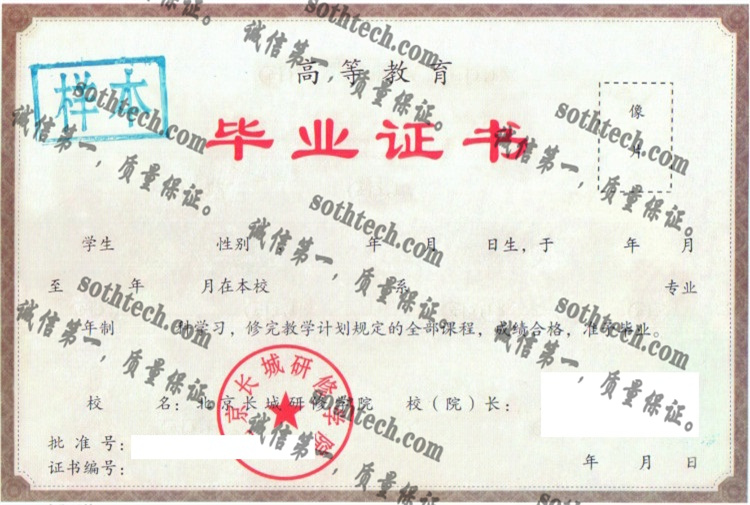 高等教育
样本
毕业证书
像
片
学生 性别 年 月 日生，于 年 月
至 年 月在本校 系 专业
年制 科学习，修完教学计划规定的全部课程，成绩合格，准予毕业。
校 名：北京长城研修学院 校（院）长：
批准号：
证书编号：
年 月 日
京长城研修学院
sothtech.com
诚信第一，质量保证。
sothtech.com
诚信第一，质量保证。
sothtech.com
诚信第一，质量保证。
sothtech.com
诚信第一，质量保证。
sothtech.com
诚信第一，质量保证。
sothtech.com
诚信第一，质量保证。
sothtech.com
诚信第一，质量保证。
sothtech.com
诚信第一，质量保证。